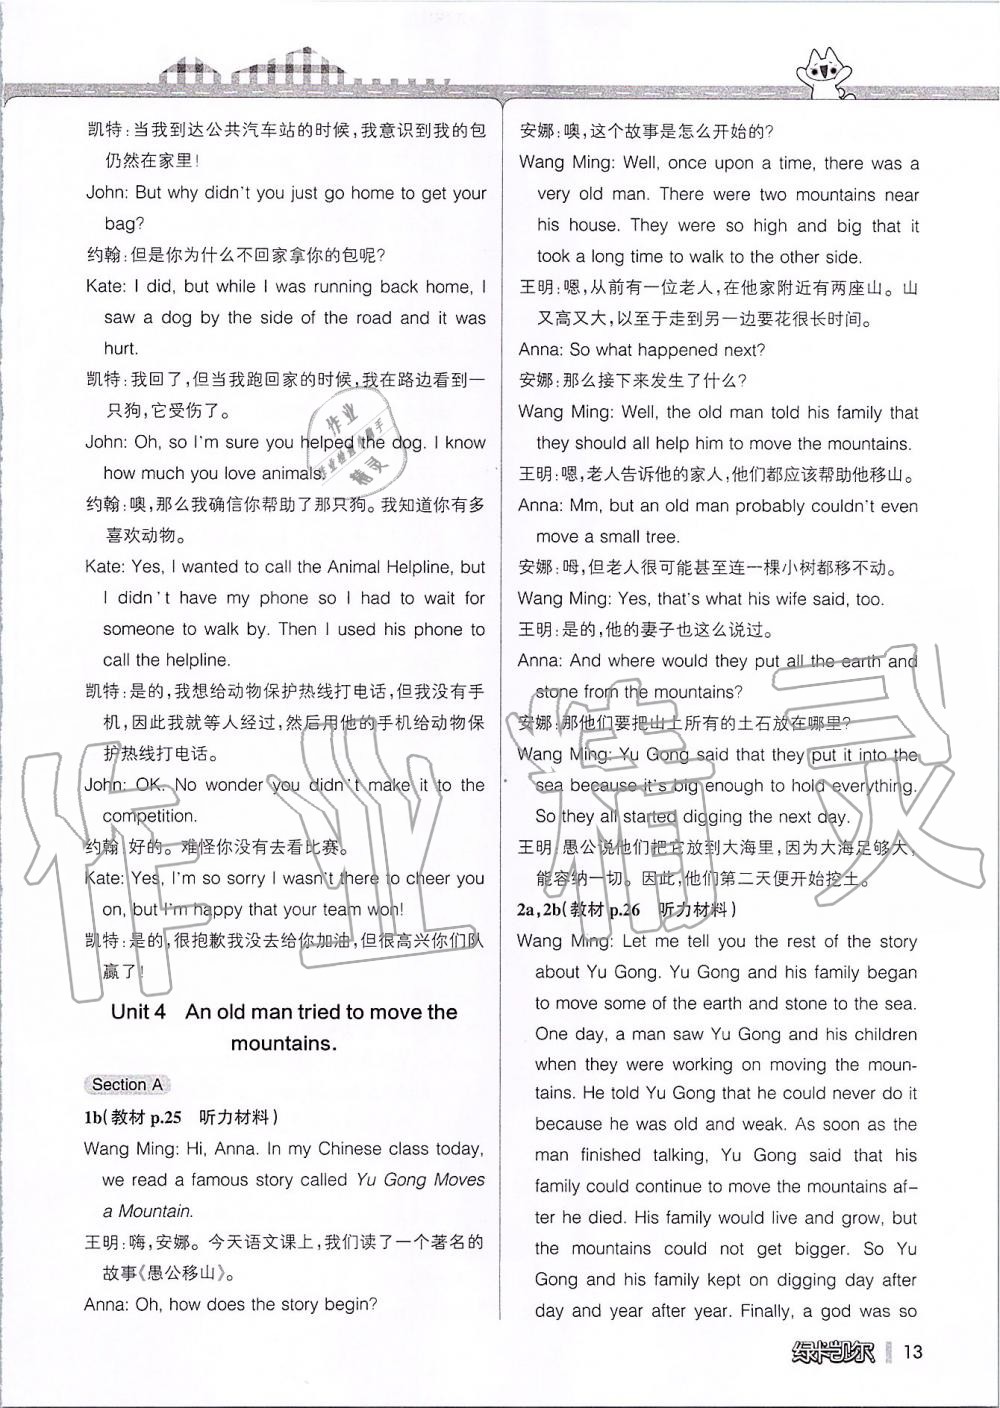 凯特:当我到达公共汽车站的时候,我意识到我的包
仍然在家里!
John: But why didn't you just go home to get your
bag?
约翰:但是你为什么不回家拿你的包呢?
Kate: I did, but while I was running back home, I
saw a dog by the side of the road and it was
hurt.
凯特:我回了,但当我跑回家的时候,我在路边看到一
只狗,它受伤了。
John: Oh, so I'm sure you helped the dog. I know
how much you love animals.
约翰:噢,那么我确信你帮助了那只狗。我知道你有多
喜欢动物。
Kate: Yes, I wanted to call the Animal Helpline, but
I didn't have my phone so I had to wait for
someone to walk by. Then I used his phone to
call the helpline.
凯特:是的,我想给动物保护热线打电话,但我没有手
机,因此我就等人经过,然后用他的手机给动物保
护热线打电话。
John: OK. No wonder you didn't make it to the
competition.
约翰:好的。难怪你没有去看比赛。
Kate: Yes, I'm so sorry I wasn't there to cheer you
on, but I'm happy that your team won!
凯特:是的,很抱歉我没去给你加油,但很高兴你们队
赢了!
Unit 4 An old man tried to move the
mountains.
Section A
1b(教材 p.25 听力材料)
Wang Ming: Hi, Anna. In my Chinese class today,
we read a famous story called Yu Gong Moves
a Mountain.
王明:嗨,安娜。今天语文课上,我们读了一个著名的
故事《愚公移山》。
Anna: Oh, how does the story begin?
安娜:噢,这个故事是怎么开始的?
Wang Ming: Well, once upon a time, there was a
very old man. There were two mountains near
his house. They were so high and big that it
took a long time to walk to the other side.
王明:嗯,从前有一位老人,在他家附近有两座山。山
又高又大,以至于走到另一边要花很长时间。
Anna: So what happened next?
安娜:那么接下来发生了什么?
Wang Ming: Well, the old man told his family that
they should all help him to move the mountains.
王明:嗯,老人告诉他的家人,他们都应该帮助他移山。
Anna: Mm, but an old man probably couldn't even
move a small tree.
安娜:呣,但老人很可能甚至连一棵小树都移不动。
Wang Ming: Yes, that's what his wife said, too.
王明:是的,他的妻子也这么说过。
Anna: And where would they put all the earth and
stone from the mountains?
安娜:那他们要把山上所有的土石放在哪里?
Wang Ming: Yu Gong said that they put it into the
sea because it's big enough to hold everything.
So they all started digging the next day.
王明:愚公说他们把它放到大海里,因为大海足够大,
能容纳一切。因此,他们第二天便开始挖土。
2a,2b(教材 p.26 听力材料)
Wang Ming: Let me tell you the rest of the story
about Yu Gong. Yu Gong and his family began
to move some of the earth and stone to the sea.
One day, a man saw Yu Gong and his children
when they were working on moving the moun-
tains. He told Yu Gong that he could never do it
because he was old and weak. As soon as the
man finished talking, Yu Gong said that his
family could continue to move the mountains af-
ter he died. His family would live and grow, but
the mountains could not get bigger. So Yu
Gong and his family kept on digging day after
day and year after year. Finally, a god was so
绿卡凯尔 13
作业精灵
作业
精灵